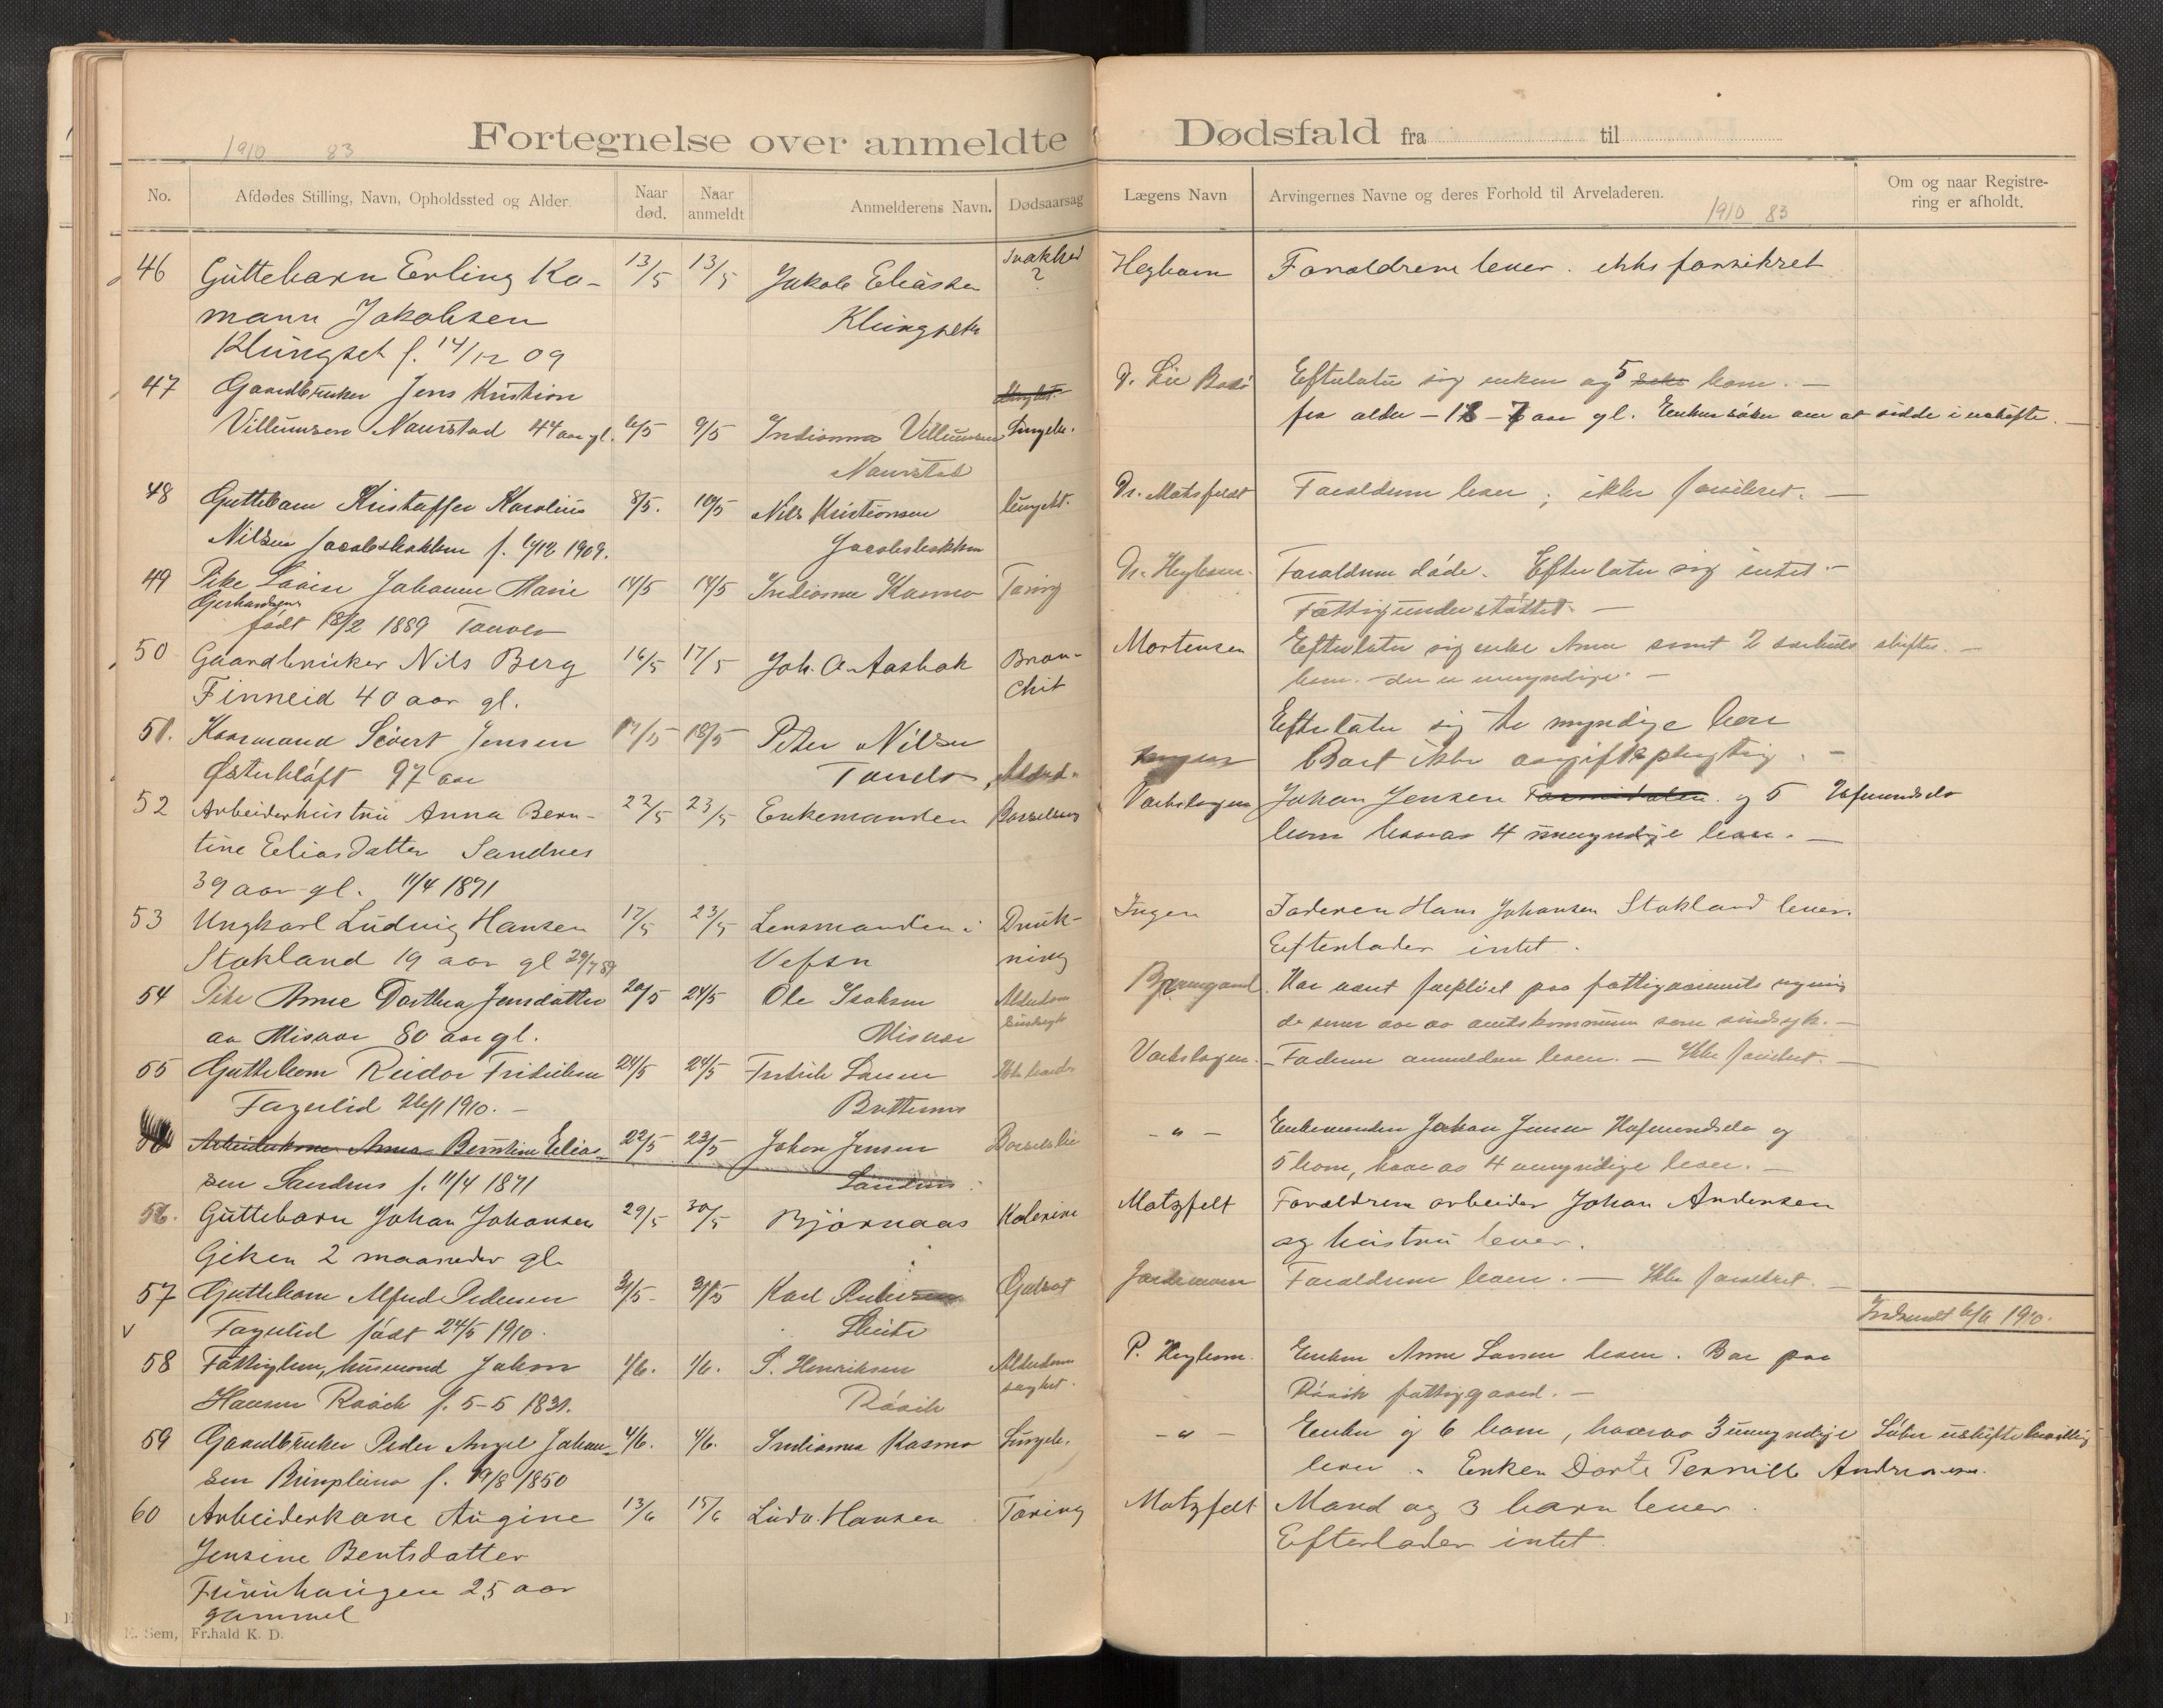 Fortegnelse over anmeldte Dødsfald fra til
1910 83
No. Afdødes Stilling, Navn, Opholdssted og Alder. Naar død. Naar anmeldt Anmelderens Navn. Dødsaarsag
Lægens Navn Arvingernes Navne og deres Forhold til Arveladeren. Om og naar Registrering er afholdt.
1910 83
46 Guttebarn Erling Ko- 13/5 13/5 Jakob Eliassen Svakhed ?
mann Jakobsen Klungset
Klungset f. 14/12 09
47 Gaardbruker Jens Kristian
Villumsen Naurstad 44 aar gl. 6/5 9/5 Indianna Villumsen
Naurstad
48 Guttebarn Kristoffer Karolius 8/5. 10/5 Nils Kristiansen
Nilsen f. 1909.
49 Pike Lovise Johanne Marie 14/5 14/5 Kosmo Tæring
Gerhardsen
født 18/2 1889
50 Gaardbruker Nils Berg 16/5 17/5 Joh. A. Aasbak Bron-
Finneid 40 aar gl. chit
51. Kaarmand Sivert Jensen 17/5 18/5 Peter Nilsen
Østerkløft 97 aar
52 Arbeiderhustru Anna Bern- 22/5 23/5 Enkemanden Barselseng
tine Eliasdatter Sandnes
39 aar gl. 11/4 1871
53 Ungkarl Ludvig Hansen 17/5 23/5 Lensmanden i Druk-
Stokland 19 aar gl Vefsn ning
54 Pike Anne Dorthea Jensdatter 20/5 24/5 Ole Isaksen Alderdom
av Misvær 80 aar gl. Misvær
55 Guttebarn Reidar Fridriksen 24/5 24/5 Fridrik Larsen
Fagerlid 1910.
Arbeiderkone Anna Berntine Elias- 22/5 23/5 Johan Jensen
sen Sandnes f. 11/4 1871 Sandnes
56. Guttebarn Johan Johansen 29/5 30/5 Bjørnaas Kolerine
Giken 2 maaneder gl.
57 Guttebarn Alfred Pedersen 31/5 31/5 Karl
Fagerlid født 24/5 1910.
58 Fattiglem, husmand Johan 1/6. 1/6. S. Henriksen Alderdom
Hansen Røvik f. 5-5 1831. Røvik
59 Gaardbruker Peder Angel Johan- 4/6. 4/6. Indianna Kosmo
sen f. 19/8 1850
60 Arbeiderkone Augine 13/6 15/6 Ludv. Hansen Tæring
Jensine Bentsdatter
Furuhaugen 25 aar
gammel
E. Sem, Fr.hald K. D.
Heybom Forældrene lever. ikke forsikret
Efterlater sig enken og 5 barn. —
fra alder — 18 – 7 aar gl. Enken søker om at sidde i uskifte.
Dr. Matzfeldt Forældrene lever; ikke forsikret. —
Dr. Heybom. Forældrene døde. Efterlater sig intet. —
Fattigunderstøttet. —
Mortensen Efterlater sig enke Anna samt 2 skiftes. —
barn. — der er umyndige. —
Efterlater sig myndige barn
Ingen Boet ikke avgiftspligtig. —
Johan Jensen og 5
barn hvorav 4 umyndige lever. —
Ingen Faderen Hans Johansen Stokland lever.
Efterlader intet.
Har været forpleiet paa fattigvæsenets regning
de senere aar av amtskommunen som sindsyk. —
Faderen anmelderen lever. — Ikke forsikret. —
— " — Enkemanden Johan Jensen og
5 barn, hvorav 4 umyndige lever. —
Matzfelt Forældrene arbeider Johan Andersen
og hustru lever.
Forældrene lever. — Ikke forsikret. —
Indsendt 6/6 1910.
P. Heybom. Enken Anne Larsen lever. Bor paa
Røvik fattiggaard. —
— " — Enken og 6 barn, hvorav 3 umyndige Søker uskiftebevilling
lever. Enken Dorte Pernille
Matzfelt Mand og 3 barn lever.
Efterlader intet.